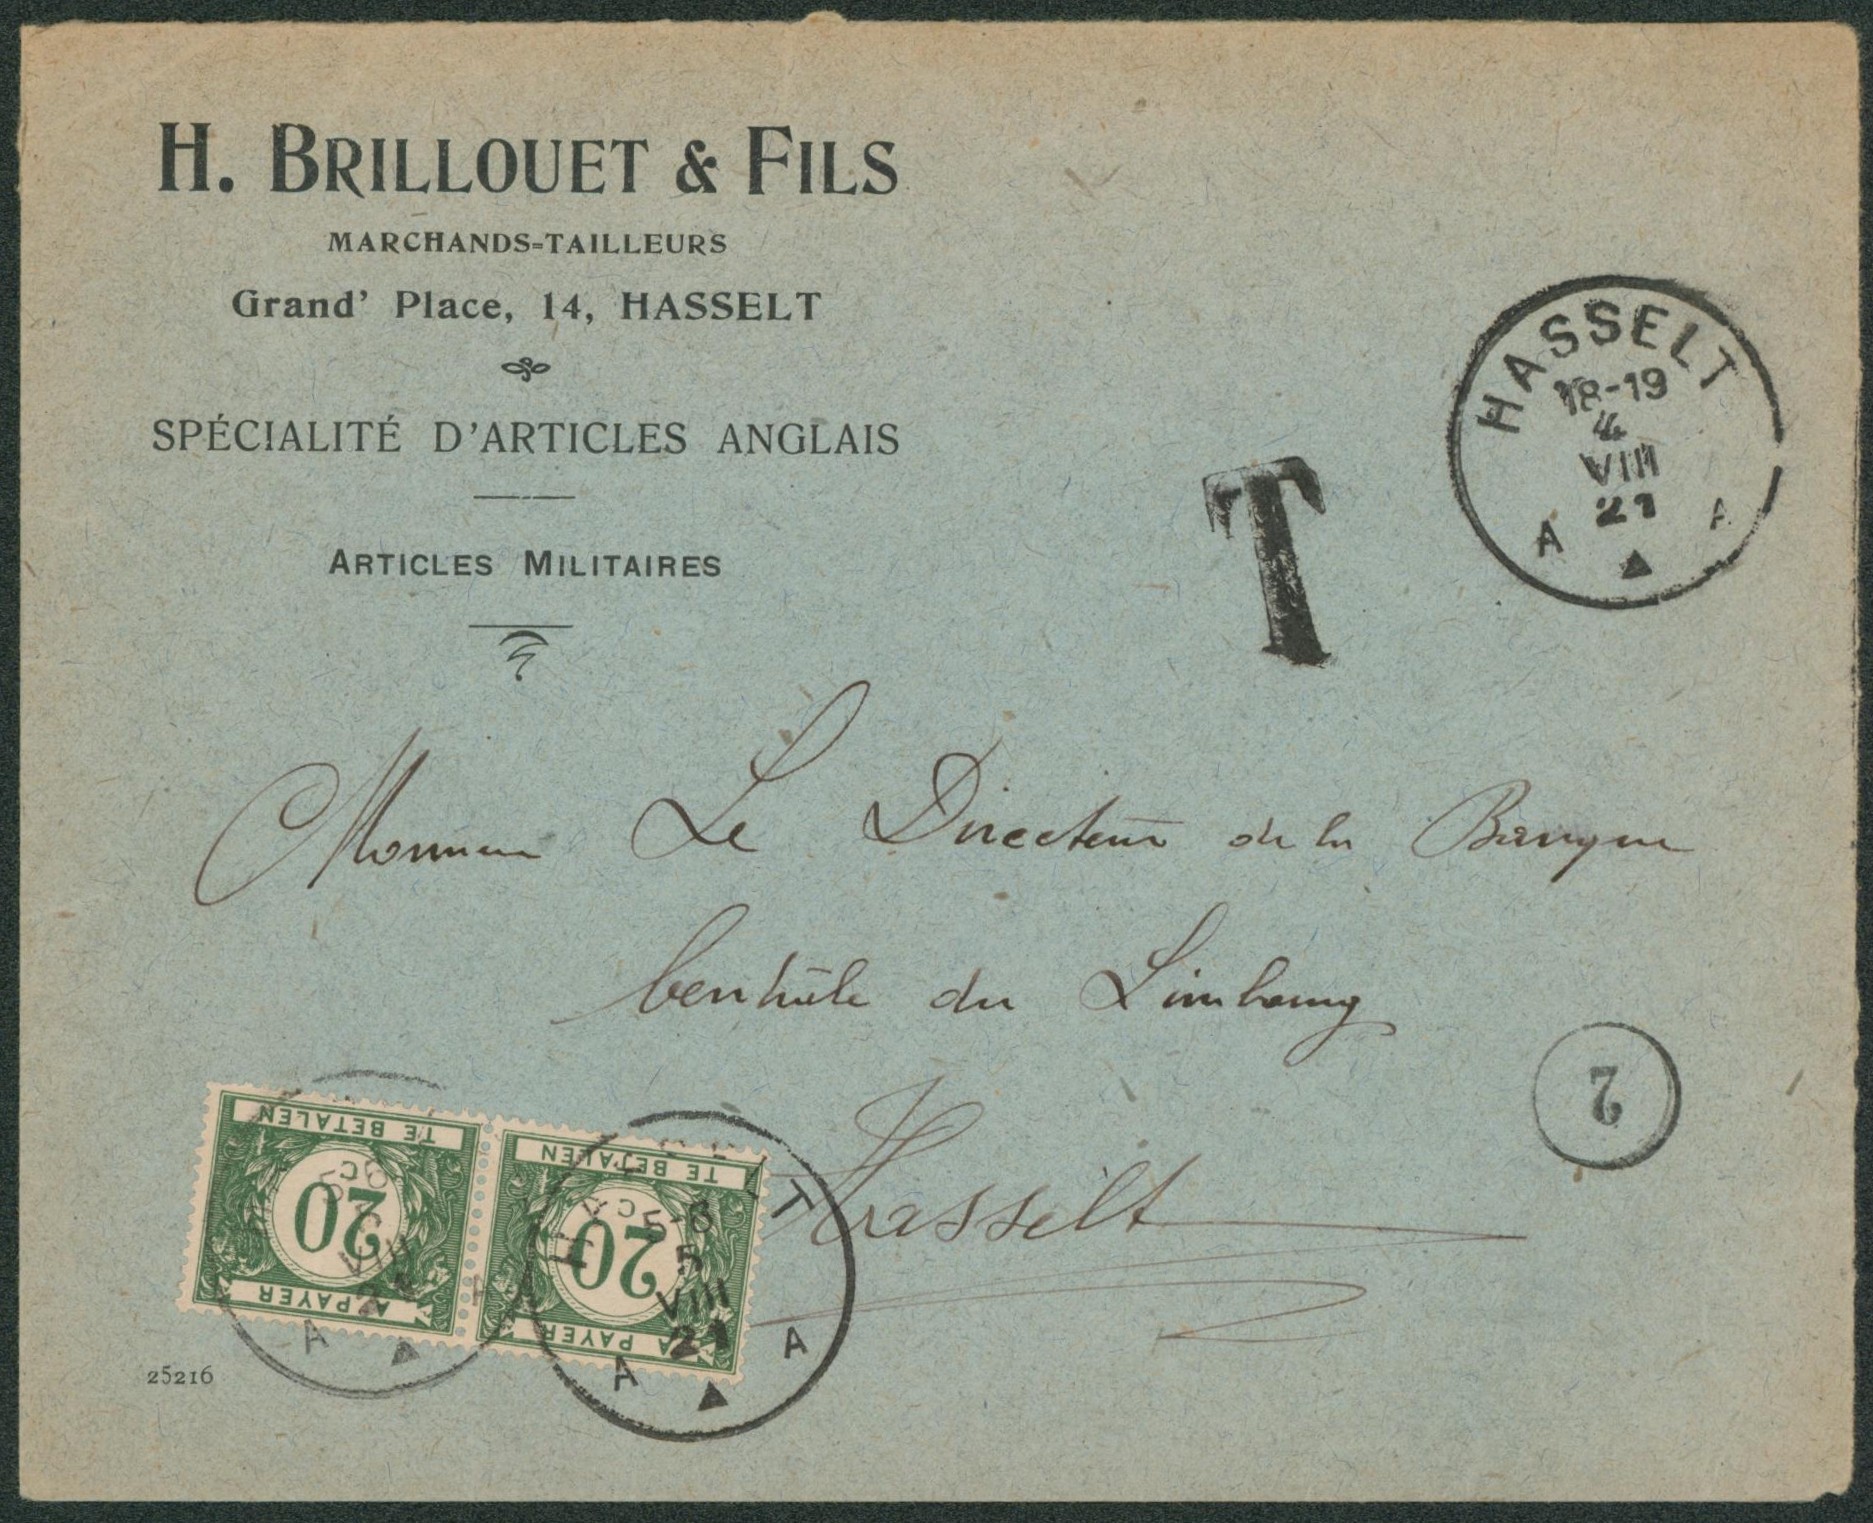 H. BRILLOUET & FILS
MARCHANDS=TAILLEURS
Grand' Place, 14, HASSELT
SPÉCIALITÉ D'ARTICLES ANGLAIS
ARTICLES MILITAIRES
HASSELT
18-19
4
VIII
21
A A
T
Monsieur Le Directeur de la Banque
Centrale du Limbourg
Hasselt
2
TE BETALEN
20
C
A PAYER
TE BETALEN
20
C
A PAYER
HASSELT
5-6
5
VIII
21
A A
5-6
VIII
A
25216